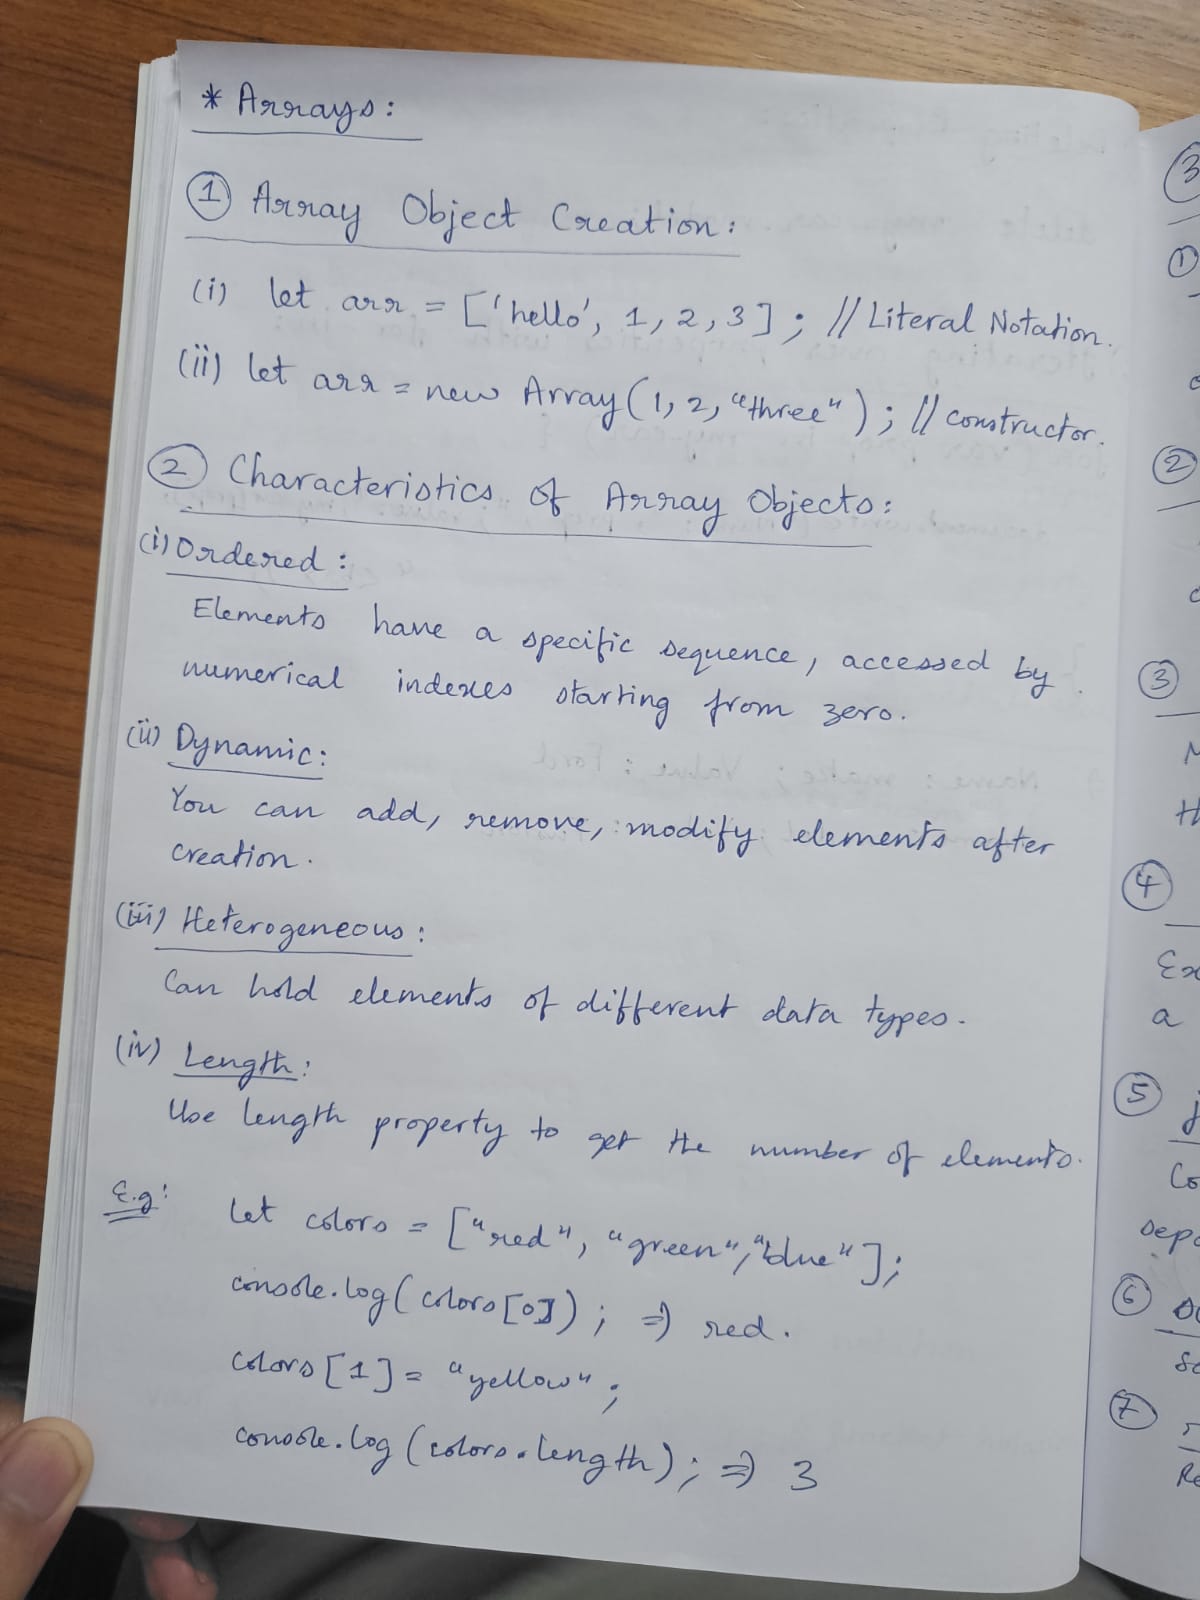 * Arrays:
① Array Object Creation:
(i) let arr = ['hello', 1, 2, 3]; // Literal Notation.
(ii) let arr = new Array(1, 2, "three"); // constructor.
② Characteristics of Array Objects:
(i) Ordered:
Elements have a specific sequence, accessed by
numerical indexes starting from zero.
(ii) Dynamic:
You can add, remove, modify elements after
creation.
(iii) Heterogeneous:
Can hold elements of different data types.
(iv) Length:
Use length property to get the number of elements.
E.g: let colors = ["red", "green", "blue"];
console.log(colors[0]); => red.
colors[1] = "yellow";
console.log(colors.length); => 3
3
①
②
③
④
a
⑤
⑥
⑦